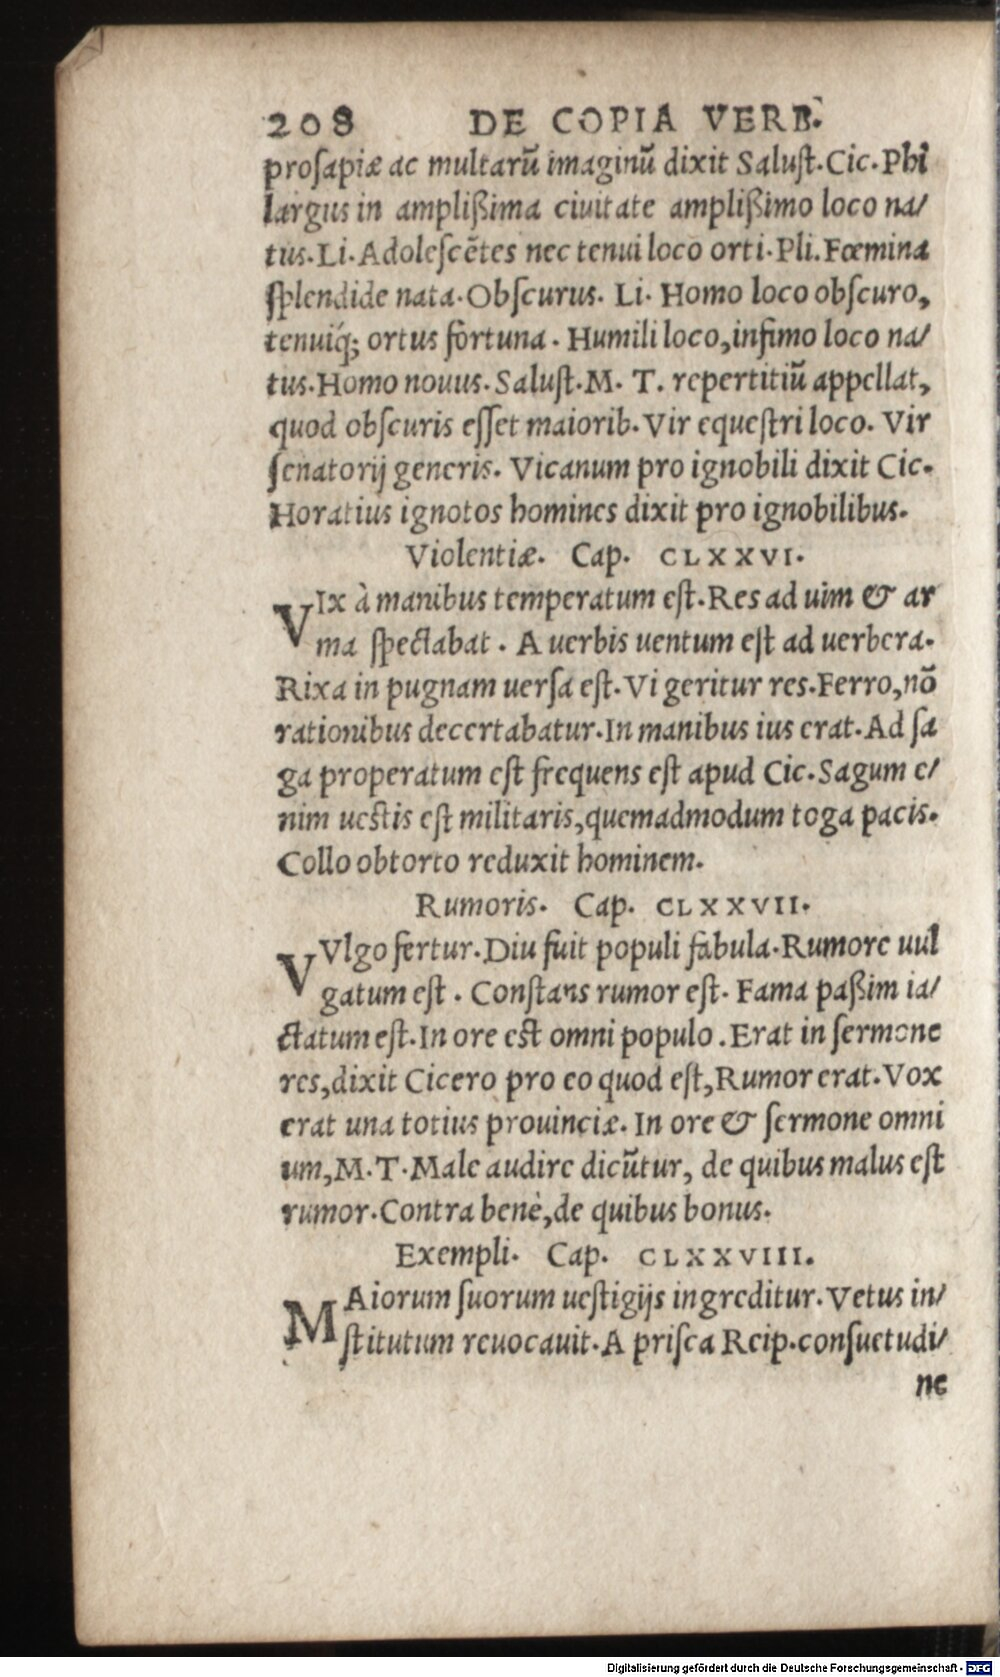 208 DE COPIA VERB.
proſapiæ ac multarũ imaginũ dixit Saluſt. Cic. Phi
largus in amplißima ciuitate amplißimo loco na/
tus. Li. Adoleſcẽtes nec tenui loco orti. Pli. Fœmina
ſplendide nata. Obſcurus. Li. Homo loco obſcuro,
tenuiq́; ortus fortuna. Humili loco, infimo loco na/
tus. Homo nouus. Saluſt. M. T. repertitiũ appellat,
quod obſcuris eſſet maiorib. Vir equeſtri loco. Vir
ſenatorij generis. Vicanum pro ignobili dixit Cic.
Horatius ignotos homines dixit pro ignobilibus.
Violentiæ. Cap. CLXXVI.
VIx à manibus temperatum eſt. Res ad uim & ar
ma ſpectabat. A uerbis uentum eſt ad uerbera.
Rixa in pugnam uerſa eſt. Vi geritur res. Ferro, nõ
rationibus decertabatur. In manibus ius erat. Ad ſa
ga properatum eſt frequens eſt apud Cic. Sagum e/
nim ueſtis eſt militaris, quemadmodum toga pacis.
Collo obtorto reduxit hominem.
Rumoris. Cap. CLXXVII.
VVlgo fertur. Diu fuit populi fabula. Rumore uul
gatum eſt. Conſtans rumor eſt. Fama paßim ia/
ctatum eſt. In ore eſt omni populo. Erat in ſermone
res, dixit Cicero pro eo quod eſt, Rumor erat. Vox
erat una totius prouinciæ. In ore & ſermone omni
um, M. T. Male audire dicũtur, de quibus malus eſt
rumor. Contra benè, de quibus bonus.
Exempli. Cap. CLXXVIII.
MAiorum ſuorum ueſtigijs ingreditur. Vetus in/
ſtitutum reuocauit. A priſca Reip. conſuetudi/
ne
Digitalisierung gefördert durch die Deutsche Forschungsgemeinschaft - DFG